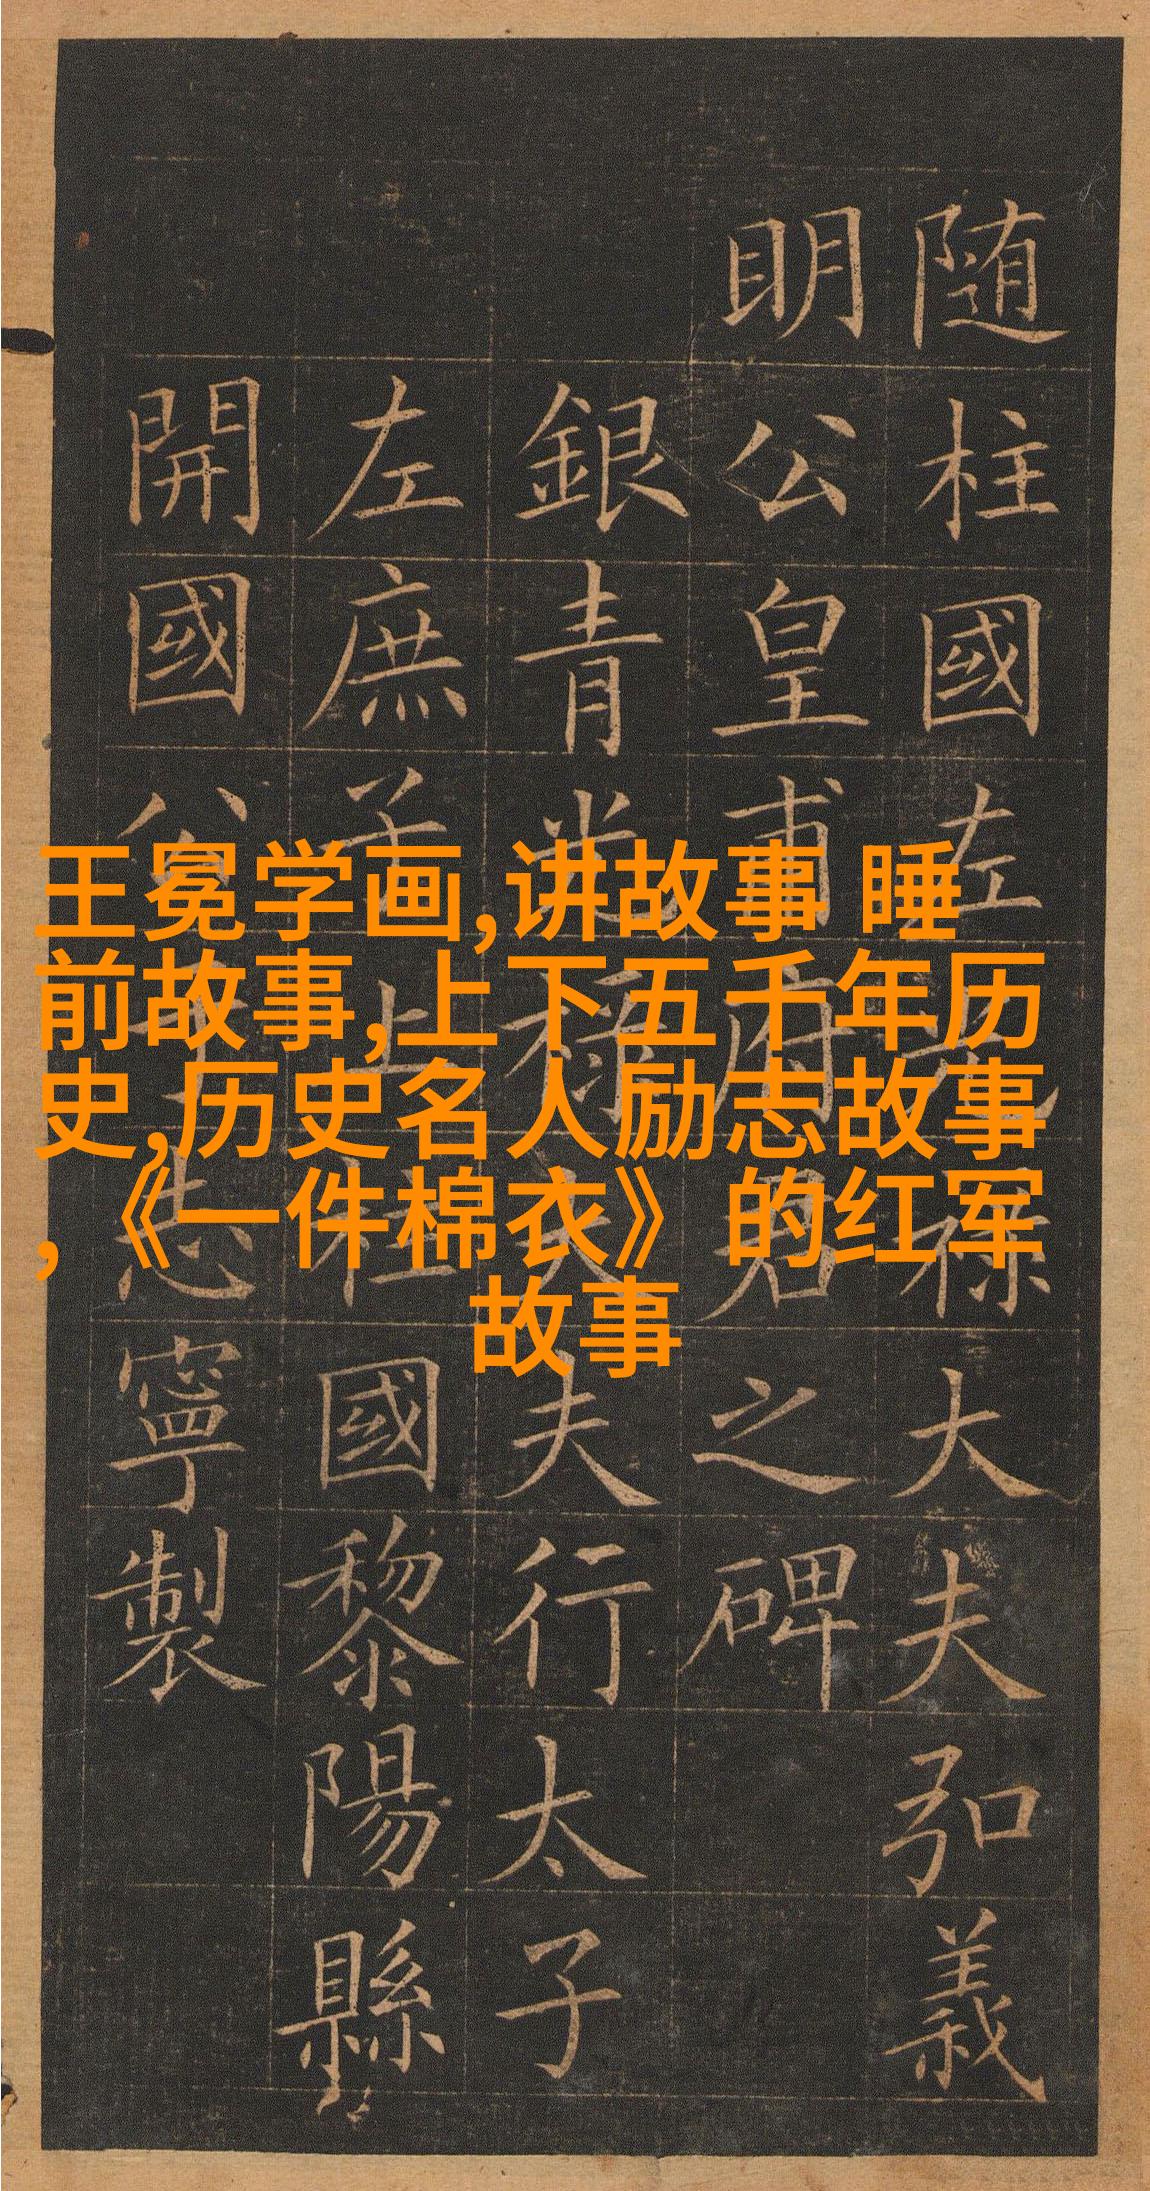 王冕学画,讲故事 睡
前故事,上下五千年历
史,历史名人励志故事
,《一件棉衣》的红军
故事
随柱國左光禄大夫弘義
明公皇甫府君之碑
銀青光禄大夫行太子
左庶子上柱國黎陽縣
開國公于志寧製